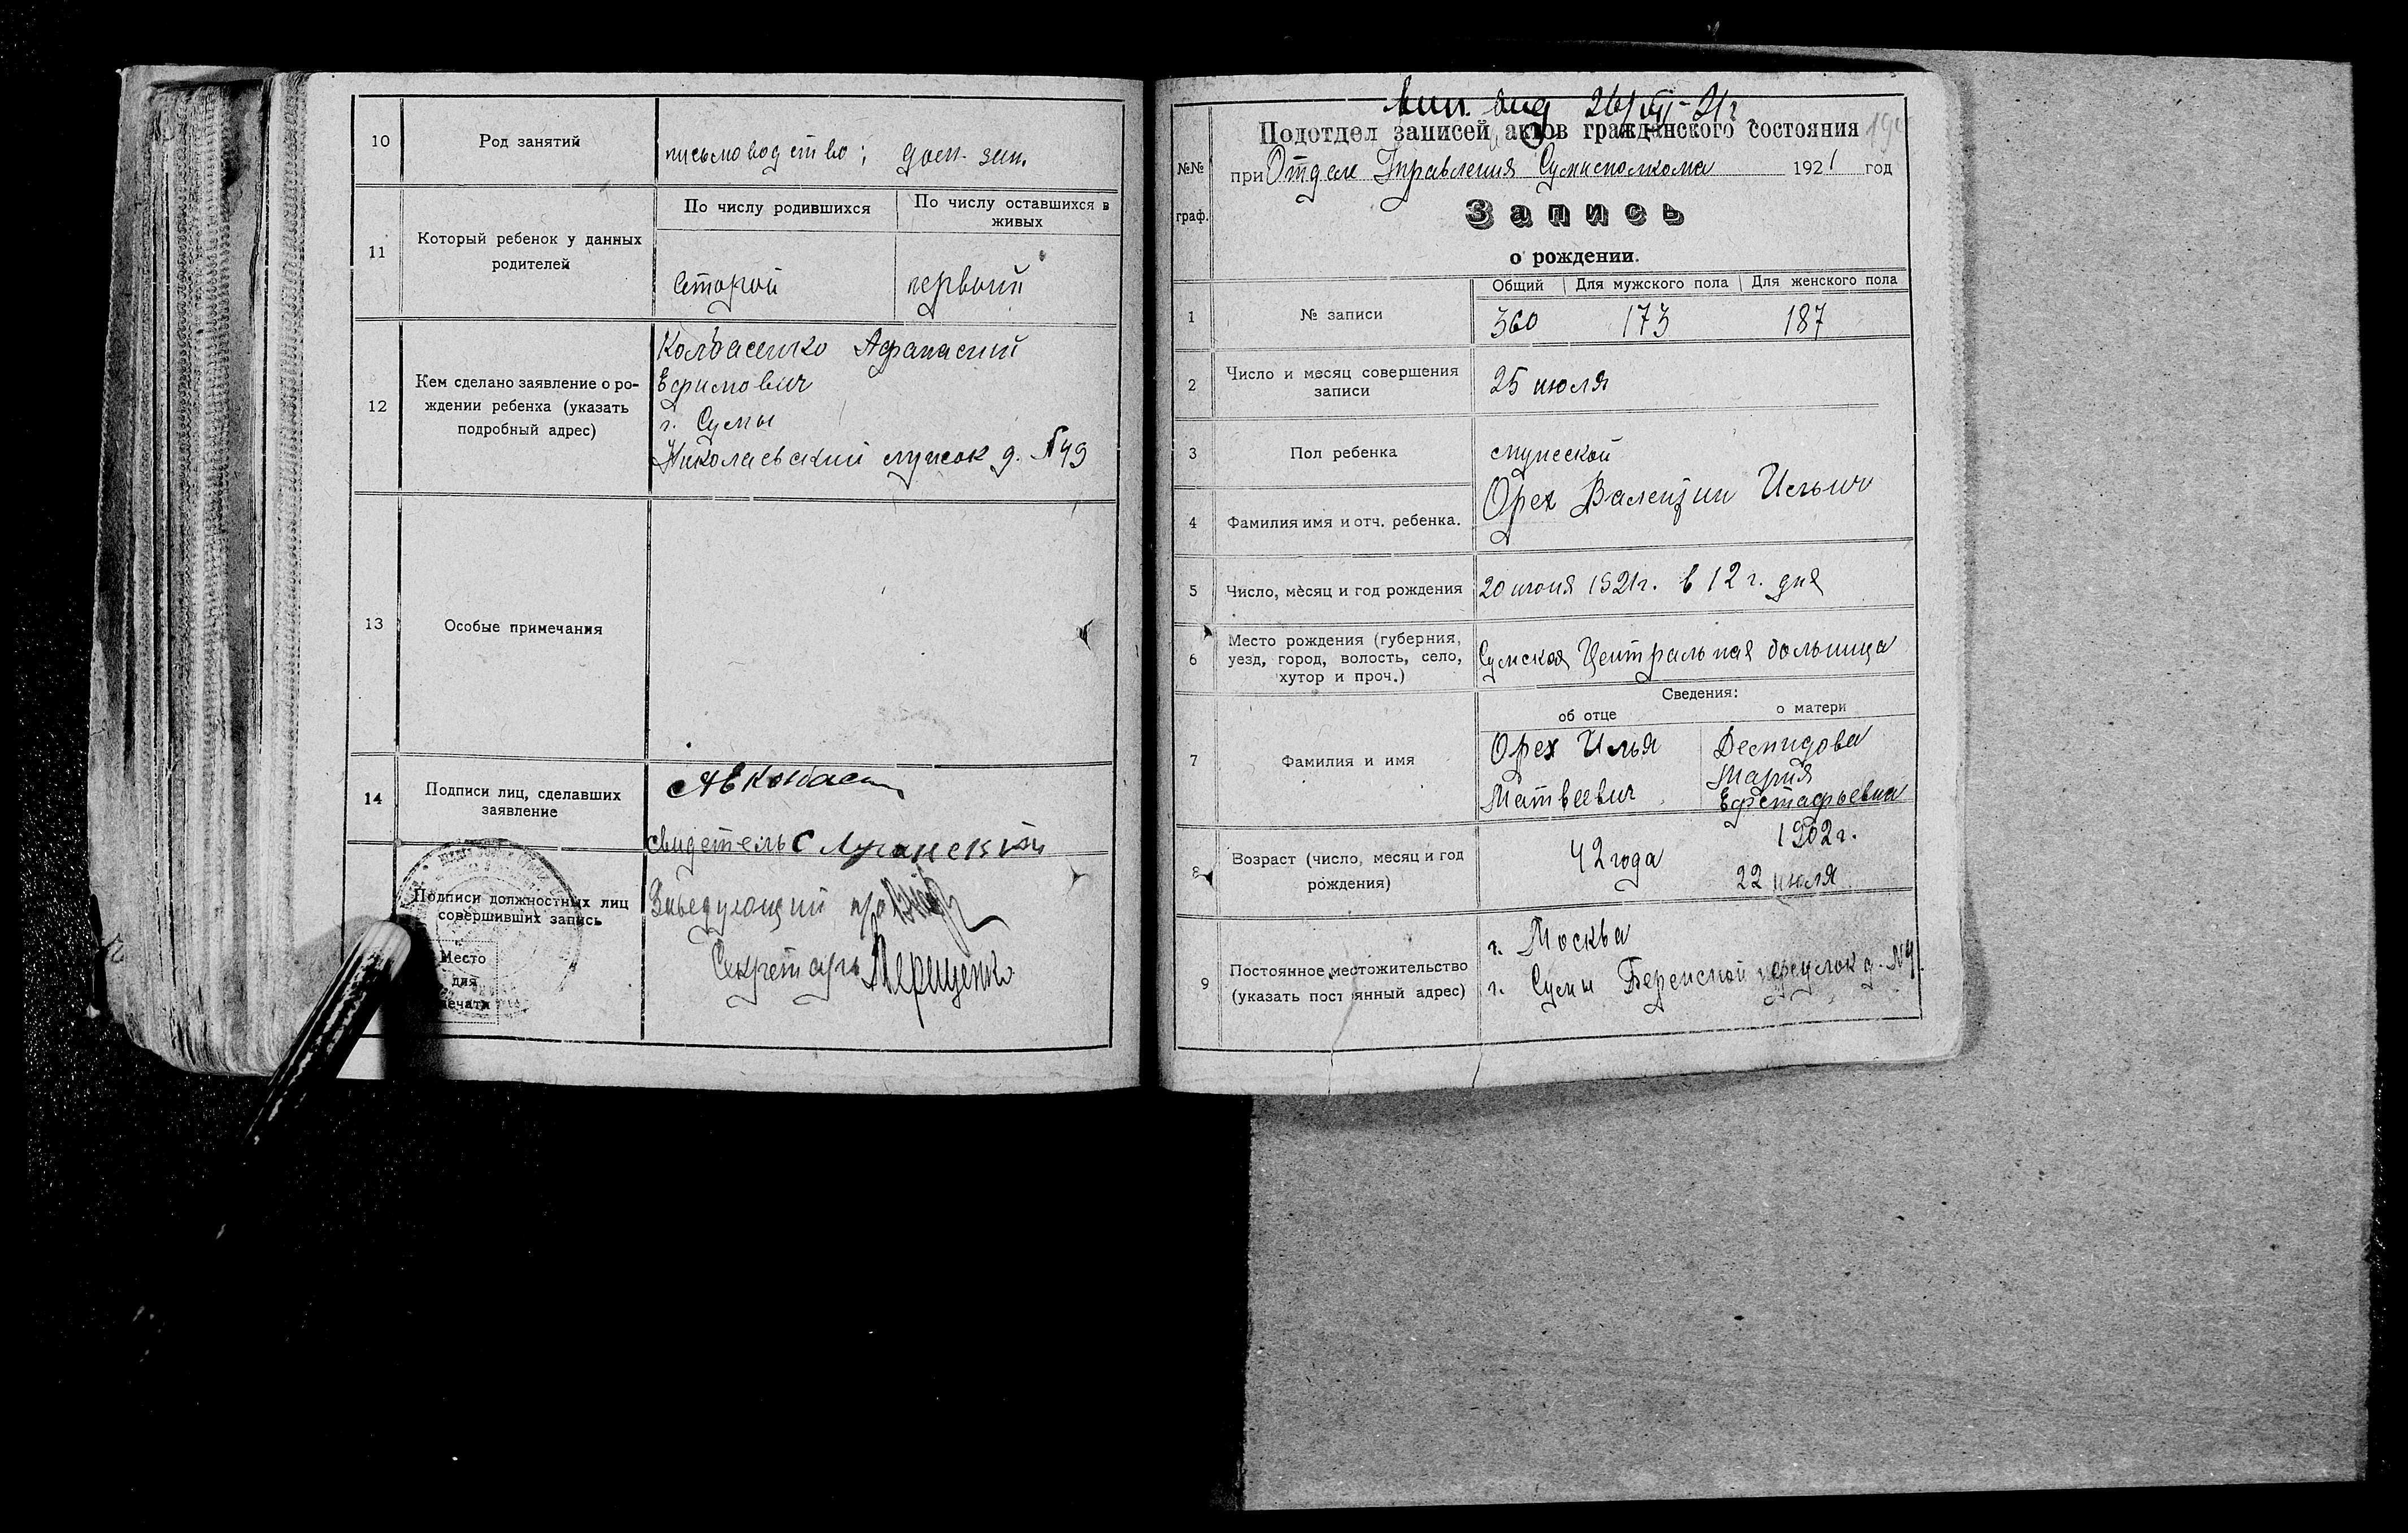 10
Род занятий
письмоводство; дом. зан.
11
Который ребенок у данных
родителей
По числу родившихся
По числу оставшихся в
живых
второй
первый
12
Кем сделано заявление о ро-
ждении ребенка (указать
подробный адрес)
Колбасенко Афанасий
Ефимович
г. Сумы
Николаевский лужок д. №49
13
Особые примечания
14
Подписи лиц, сделавших
заявление
свидетель
Подписи должностных лиц
совершивших запись
Место
для
печати
Заведующий
Секретарь Терещенко
Подотдел записей актов гражданского состояния
№№
граф.
при Отделе Управления Сумисполкома 1921 год
Запись
о рождении.
Общий Для мужского пола Для женского пола
1
№ записи
360 173 187
2
Число и месяц совершения
записи
25 июля
3
Пол ребенка
мужской
4
Фамилия имя и отч. ребенка.
Орех Валентин Ильич
5
Число, месяц и год рождения
20 июня 1921г. в 12 г. дня
6
Место рождения (губерния,
уезд, город, волость, село,
хутор и проч.)
Сумская Центральная больница
Сведения:
об отце
о матери
7
Фамилия и имя
Орех Илья
Матвеевич
Демидова
Мария
Евстафьевна
8
Возраст (число, месяц и год
рождения)
42 года
1902г.
22 июля
9
Постоянное местожительство
(указать постоянный адрес)
г. Москва
г. Сумы